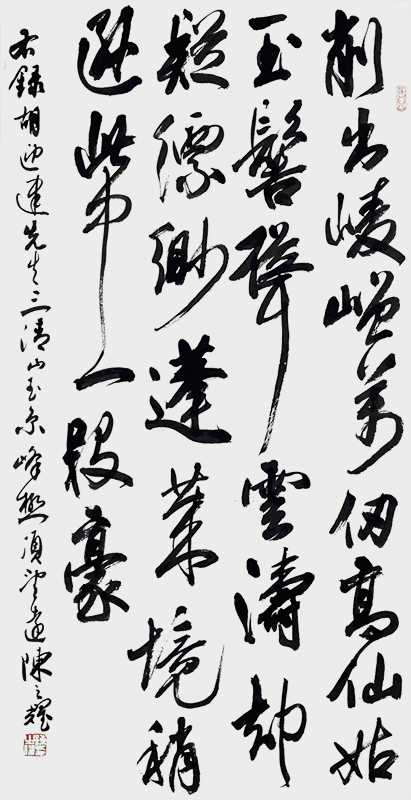 削出崚嶒萬仞高仙姑
玉髻聳雲濤却
疑縹緲蓬萊境稍
遜此中一段豪
右録胡迎建先生三清山玉京峰頂望陳之耀